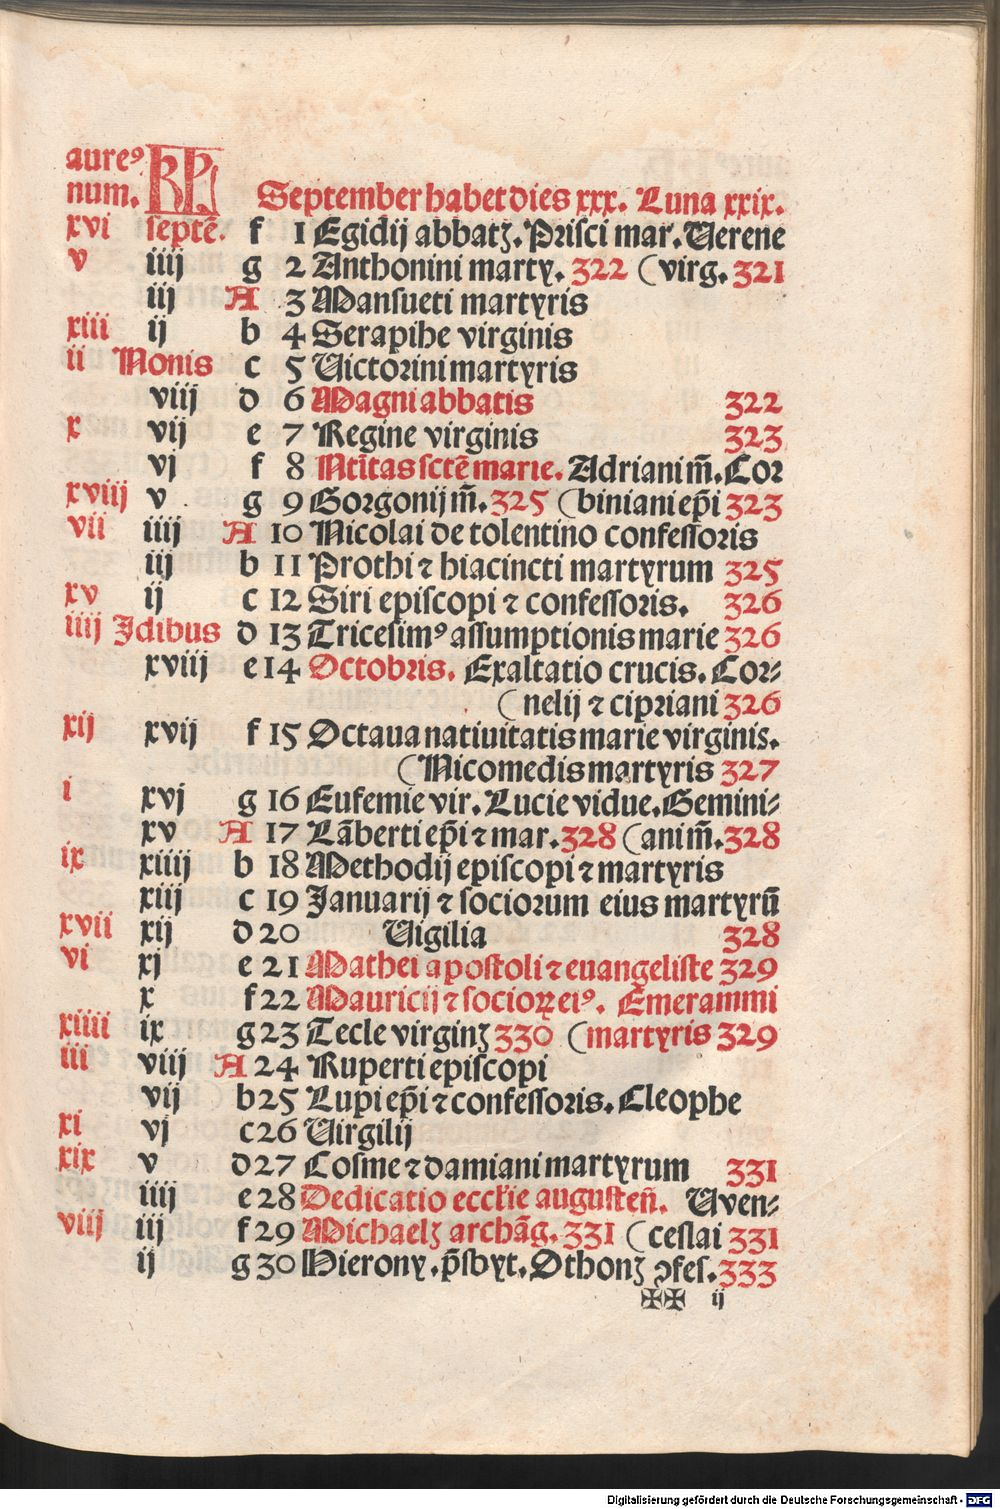 aureꝰ KL
num. September habet dies xxx. Luna xxix.
xvi septē. f 1 Egidij abbatꝫ. Prisci mar. Uerene
v iiij g 2 Anthonini marty. 322 (virg. 321
iij A 3 Mansueti martyris
xiii ij b 4 Serapihe virginis
ii Nonis c 5 Uictorini martyris
viij d 6 Magni abbatis 322
x vij e 7 Regine virginis 323
vj f 8 Ntītas sctē marie. Adriani m̄. Cor
xviij v g 9 Gorgonij m̄. 325 (biniani ep̄i 323
vii iiij A 10 Nicolai de tolentino confessoris
iij b 11 Prothi ⁊ hiacincti martyrum 325
xv ij c 12 Siri episcopi ⁊ confessoris. 326
iiij Idibus d 13 Tricesimꝰ assumptionis marie 326
xviij e 14 Octobris. Exaltatio crucis. Cor⸗
(nelij ⁊ cipriani 326
xij xvij f 15 Octaua natiuitatis marie virginis.
(Nicomedis martyris 327
i xvj g 16 Eufemie vir. Lucie vidue. Gemini⸗
xv A 17 Lāberti ep̄i ⁊ mar. 328 (ani m̄. 328
ix xiiij b 18 Methodij episcopi ⁊ martyris
xiij c 19 Januarij ⁊ sociorum eius martyrū
xvii xij d 20 Uigilia 328
vi xj e 21 Mathei apostoli ⁊ euangeliste 329
x f 22 Mauricij ⁊ socioꝝ eiꝰ. Emerammi
xiiii ix g 23 Tecle virginꝫ 330 (martyris 329
iii viij A 24 Ruperti episcopi
vij b 25 Lupi ep̄i ⁊ confessoris. Cleophe
xi vj c 26 Uirgilij
xix v d 27 Cosme ⁊ damiani martyrum 331
iiij e 28 Dedicatio eccl̄ie augusteñ. Uven⸗
viij iij f 29 Michaelꝫ archāg. 331 (ceslai 331
ij g 30 Hierony. p̄sbyt. Othonꝫ ꝯfes. 333
✠✠ ij
Digitalisierung gefördert durch die Deutsche Forschungsgemeinschaft - DFG